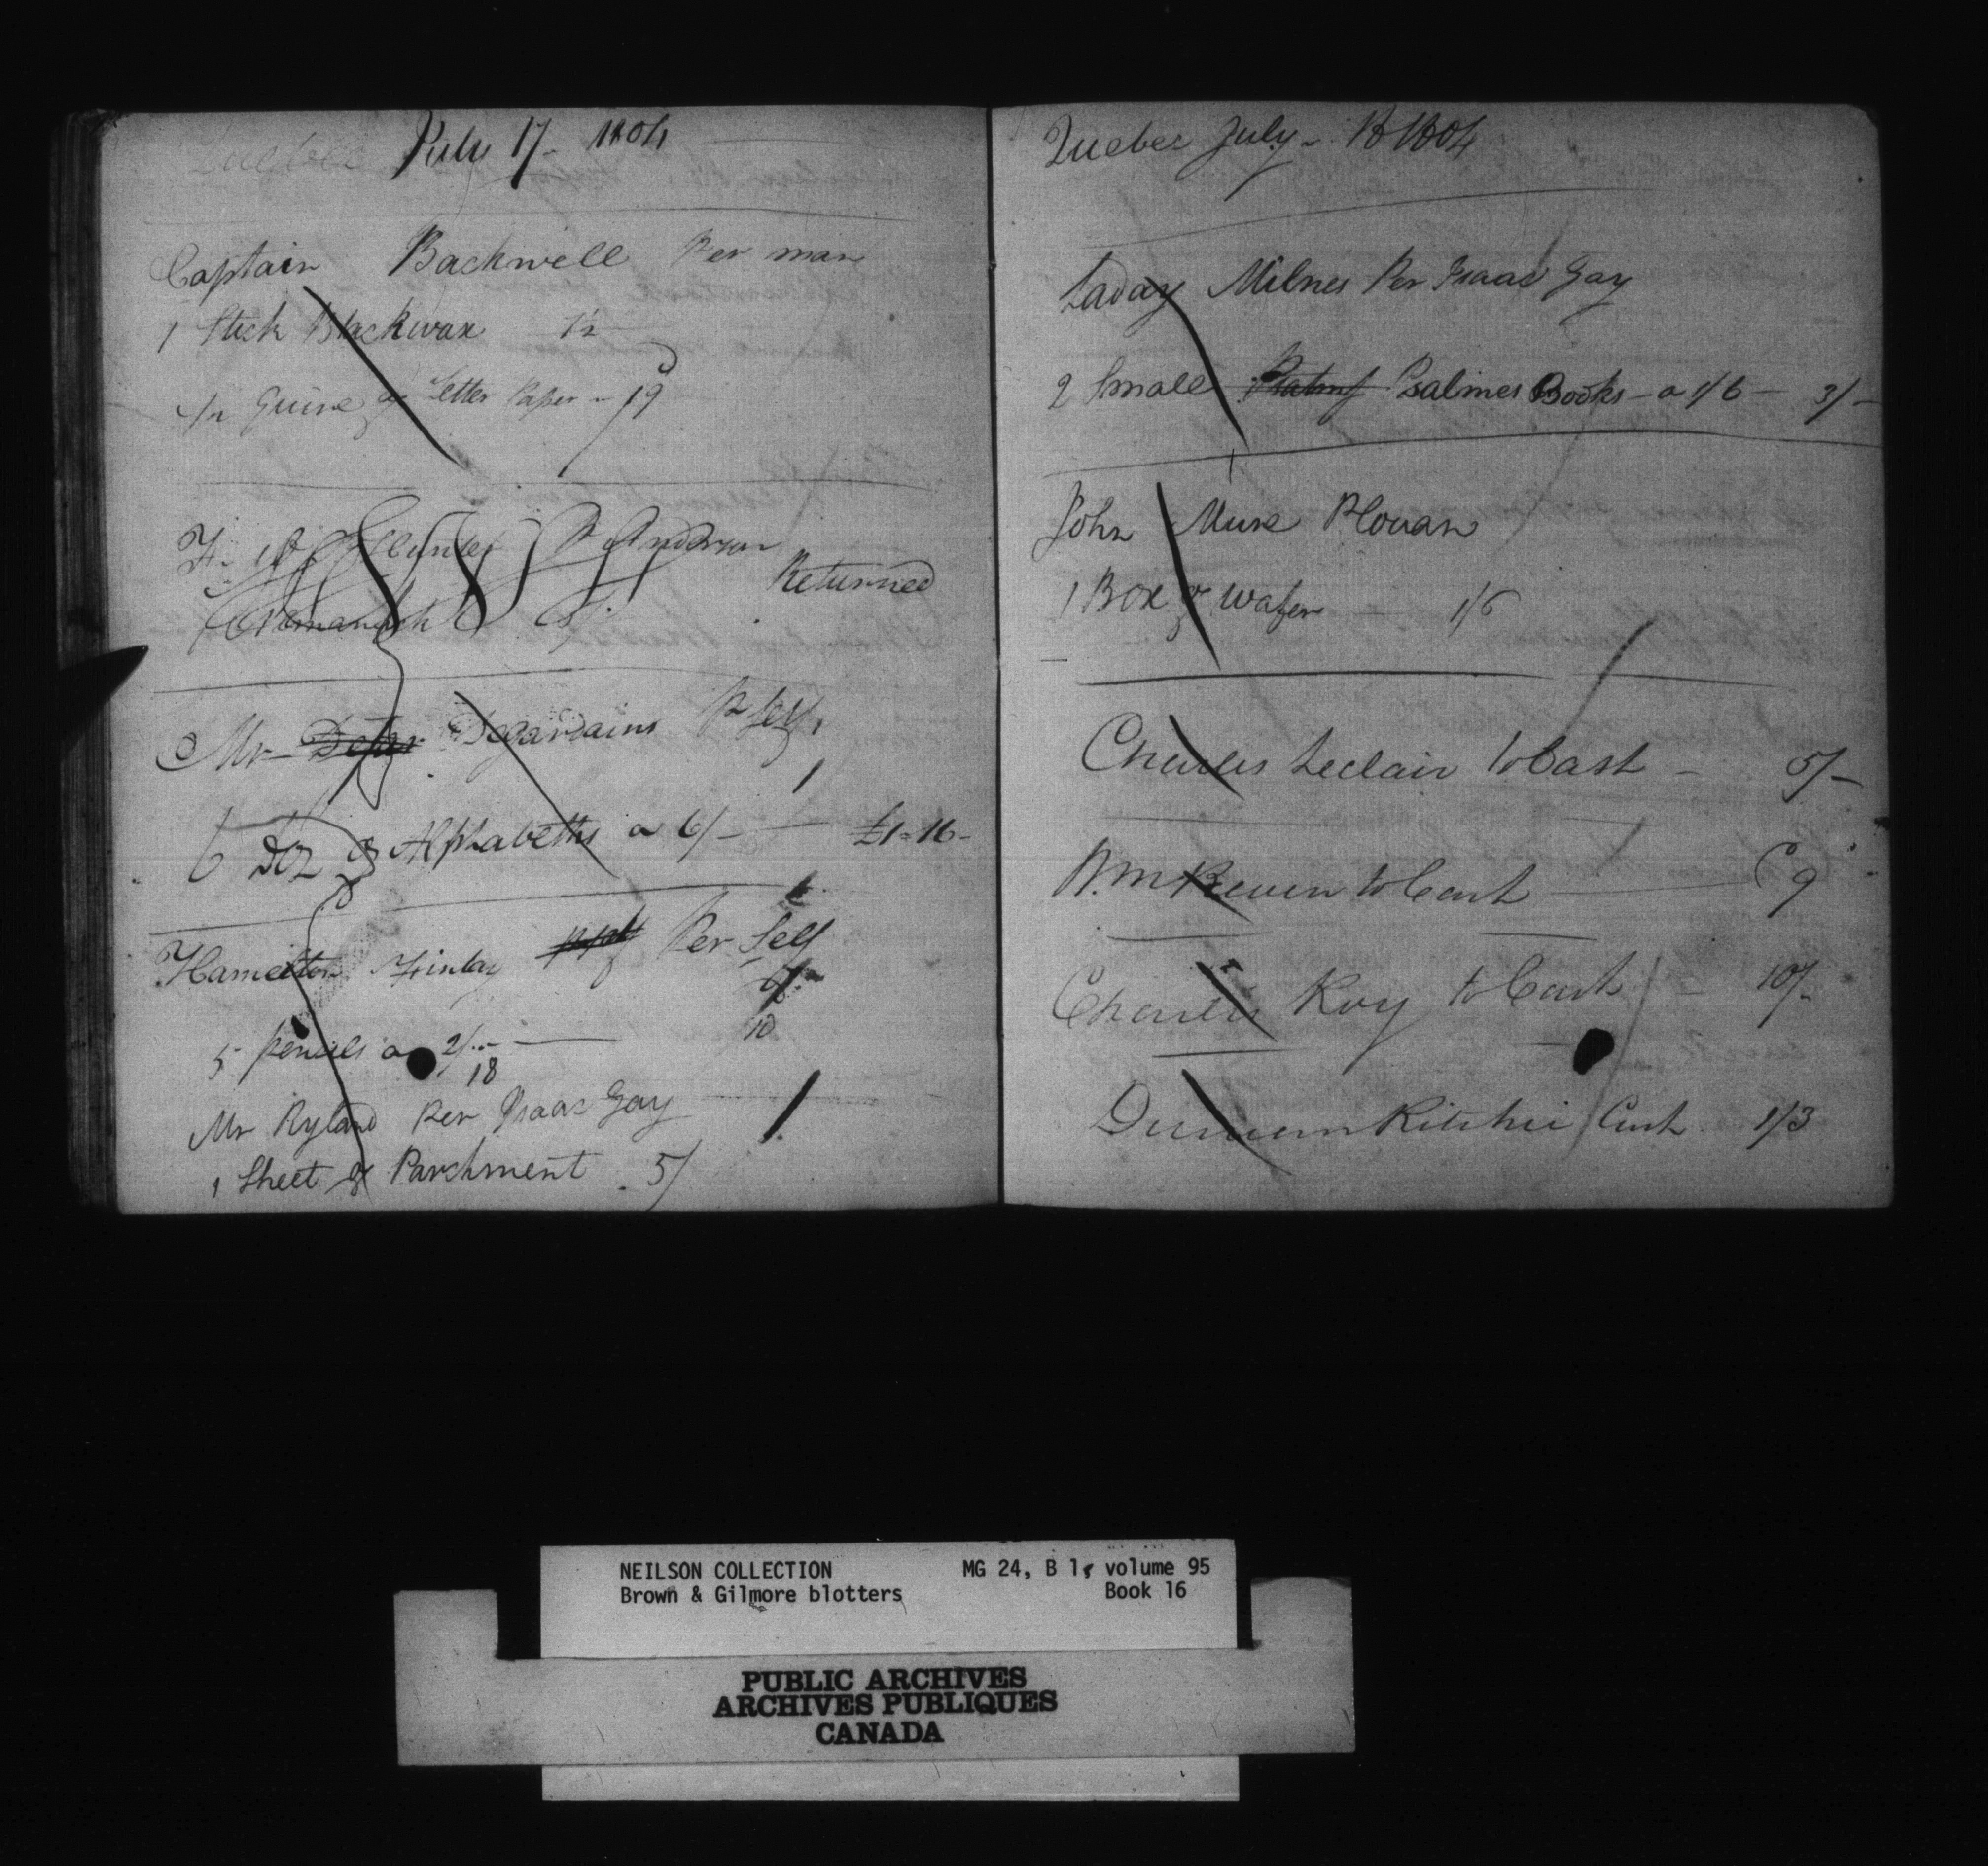 Quebec July 17 - 1804
Captain Backwell Per man
1 Stick Blackwax 1/2
1/2 Quire of Letter Paper - /9
Hunter P Anderson
Returned
Mr Degardains P Self
6 Doz of Alphabeths a 6/ - £1=16-
Hamelton Finlay Per Self
5 pencils a 2/ 10
18
Mr Ryland Per Isaac Gay
1 Sheet of Parchment 5/
Quebec July - 18 1804
Laday Milnes Per Isaac Gay
2 Small Psalmes Books - a 1/6 - 3/-
John Mure Plouan
1 Box of Wafer - 1/6
Charles Leclair to Cash - 5/-
Wm Beven to Cash 9
Charles Roy to Cash - 10/-
Duncan Ritchie Cash 1/3
NEILSON COLLECTION MG 24, B 1, volume 95
Brown & Gilmore blotters Book 16
PUBLIC ARCHIVES
ARCHIVES PUBLIQUES
CANADA